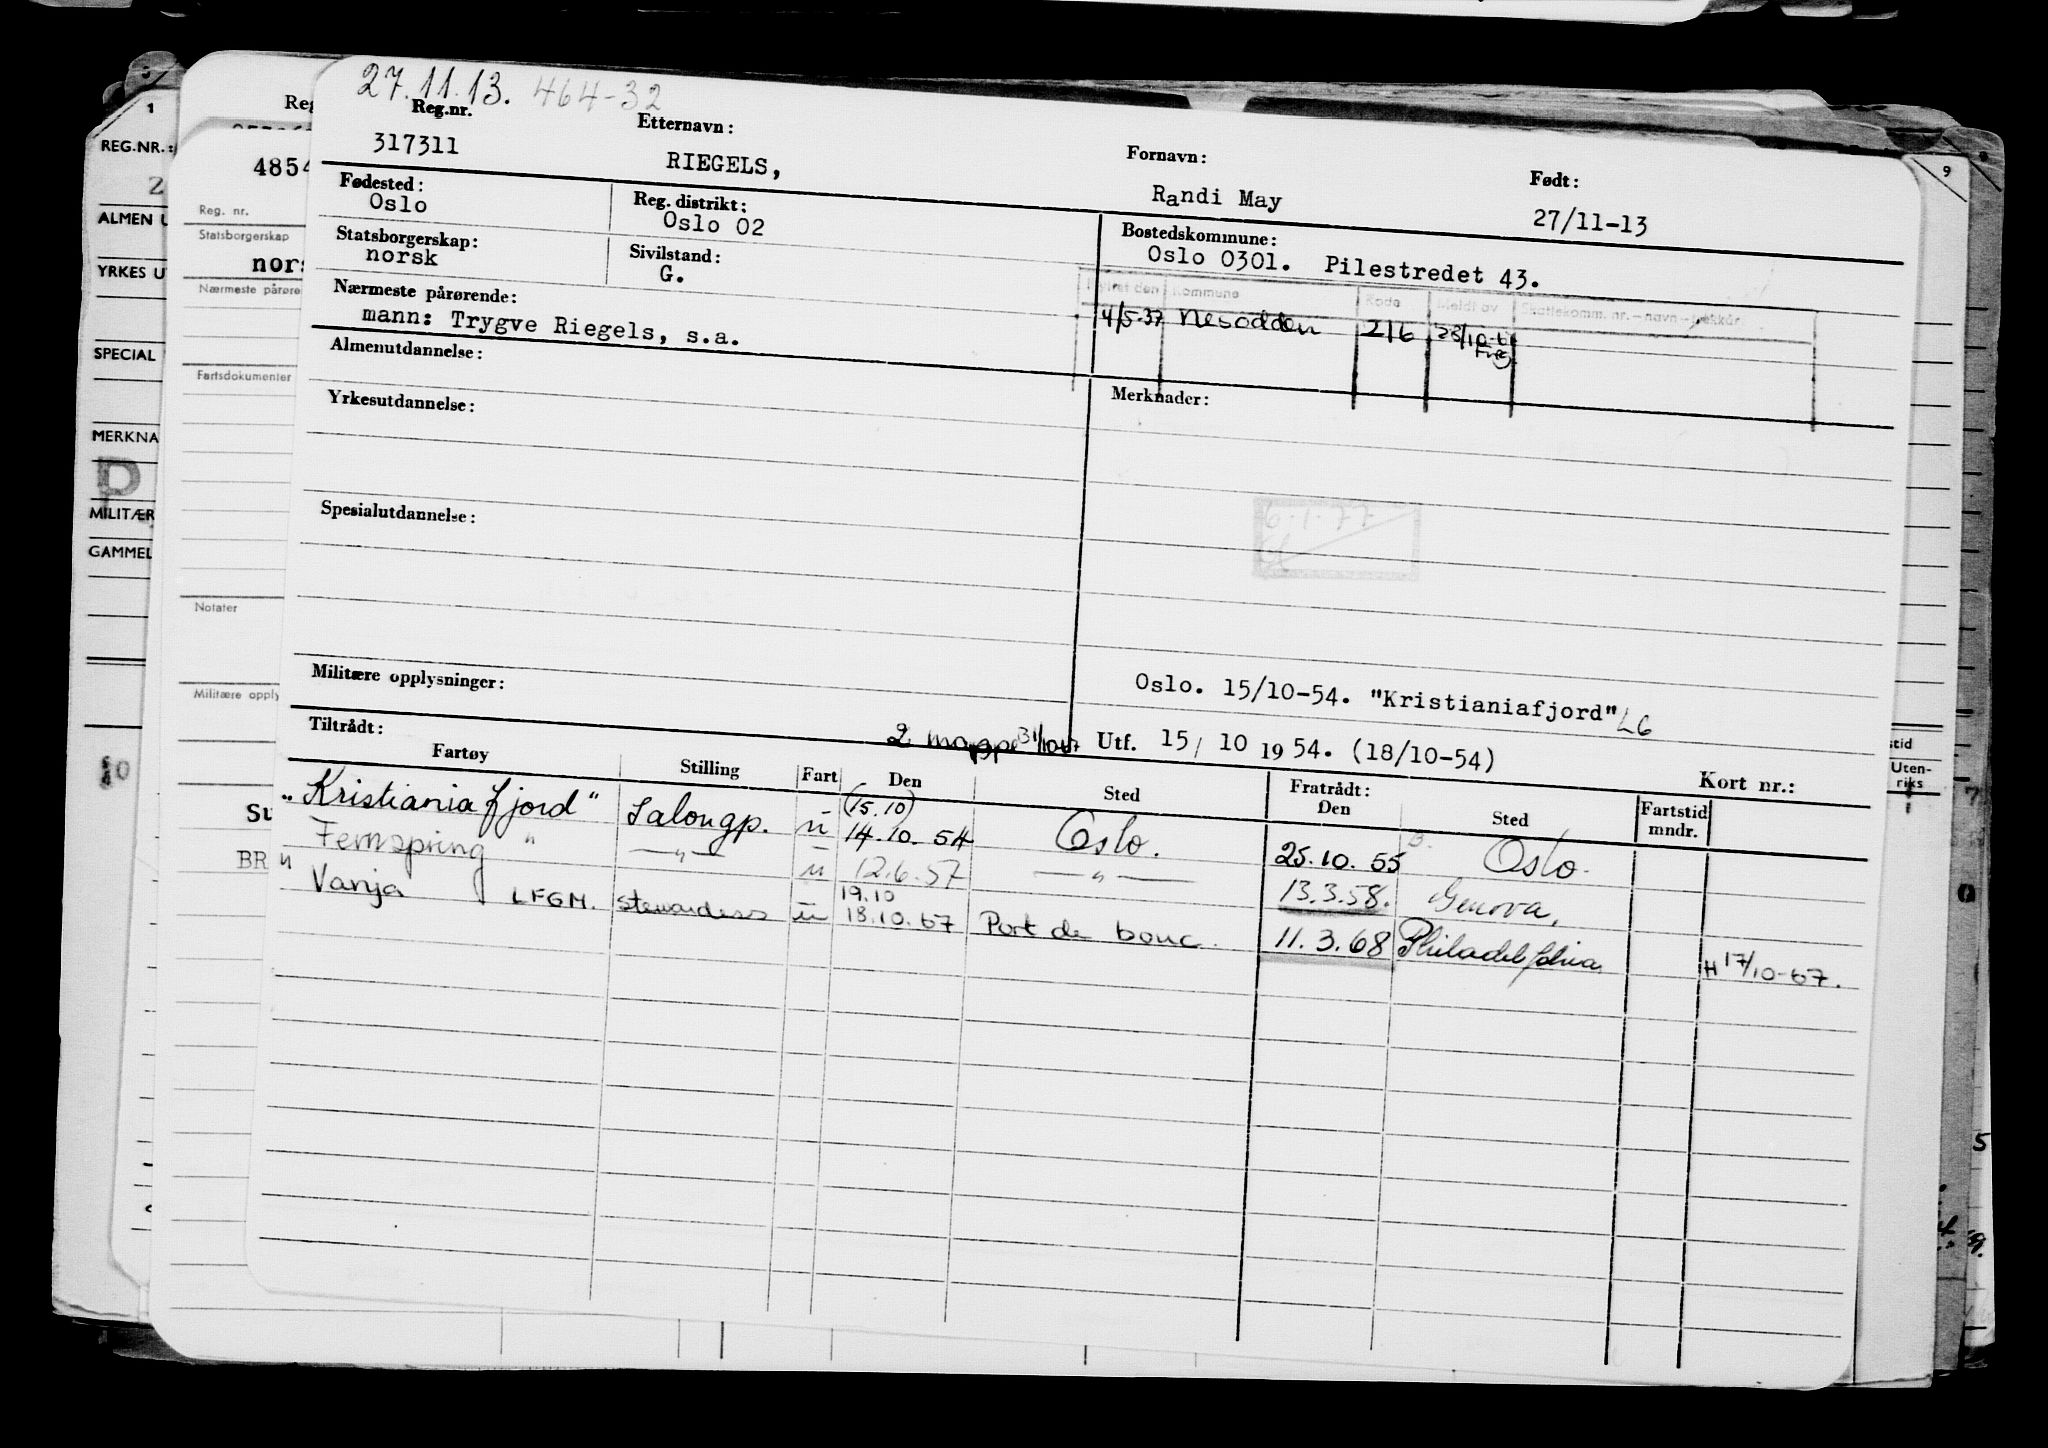 27.11.13. 464-32
Reg.nr. Etternavn: Fornavn: Født:
317311 RIEGELS, Randi May 27/11-13
Fødested: Reg. distrikt: Bostedskommune:
Oslo Oslo 02 Oslo 0301. Pilestredet 43.
Statsborgerskap: Sivilstand:
norsk G.
Kommune Kode Meldt av Skattekomm. nr. - navn -
4/5-37 Nesodden 216
Nærmeste pårørende:
mann: Trygve Riegels, s.a.
Almenutdannelse:
Yrkesutdannelse: Merknader:
6.1.77
Spesialutdannelse:
Militære opplysninger: Oslo. 15/10-54. "Kristianiafjord" L6
Tiltrådt: 2 mappe 31/10-67 Utf. 15/ 10 1954. (18/10-54) Kort nr.:
Fartøy Stilling Fart Den Sted Fratrådt: Den Sted Fartstid mndr.
"Kristianiafjord" Salongp. u (15.10) 14.10.54 Oslo. 25.10.55 Oslo.
Fernspring " —„— u 12.6.57 —„— 13.3.58. Genova,
" Vanja LFGM. stewardess u 19.10 18.10.67 Port de bouc. 11.3.68 Philadelphia H 17/10-67.
1
REG.NR.:
ALMEN U
YRKES U
SPECIAL
MERKNA
P
MILITÆR
GAMMEL
Reg
4854
Reg. nr.
Statsborgerskap
nors
Nærmeste pårøre
Fartsdokumenter
Notater
Militære opply
Su
BR
9
stid
Uten-
riks
7
0
5